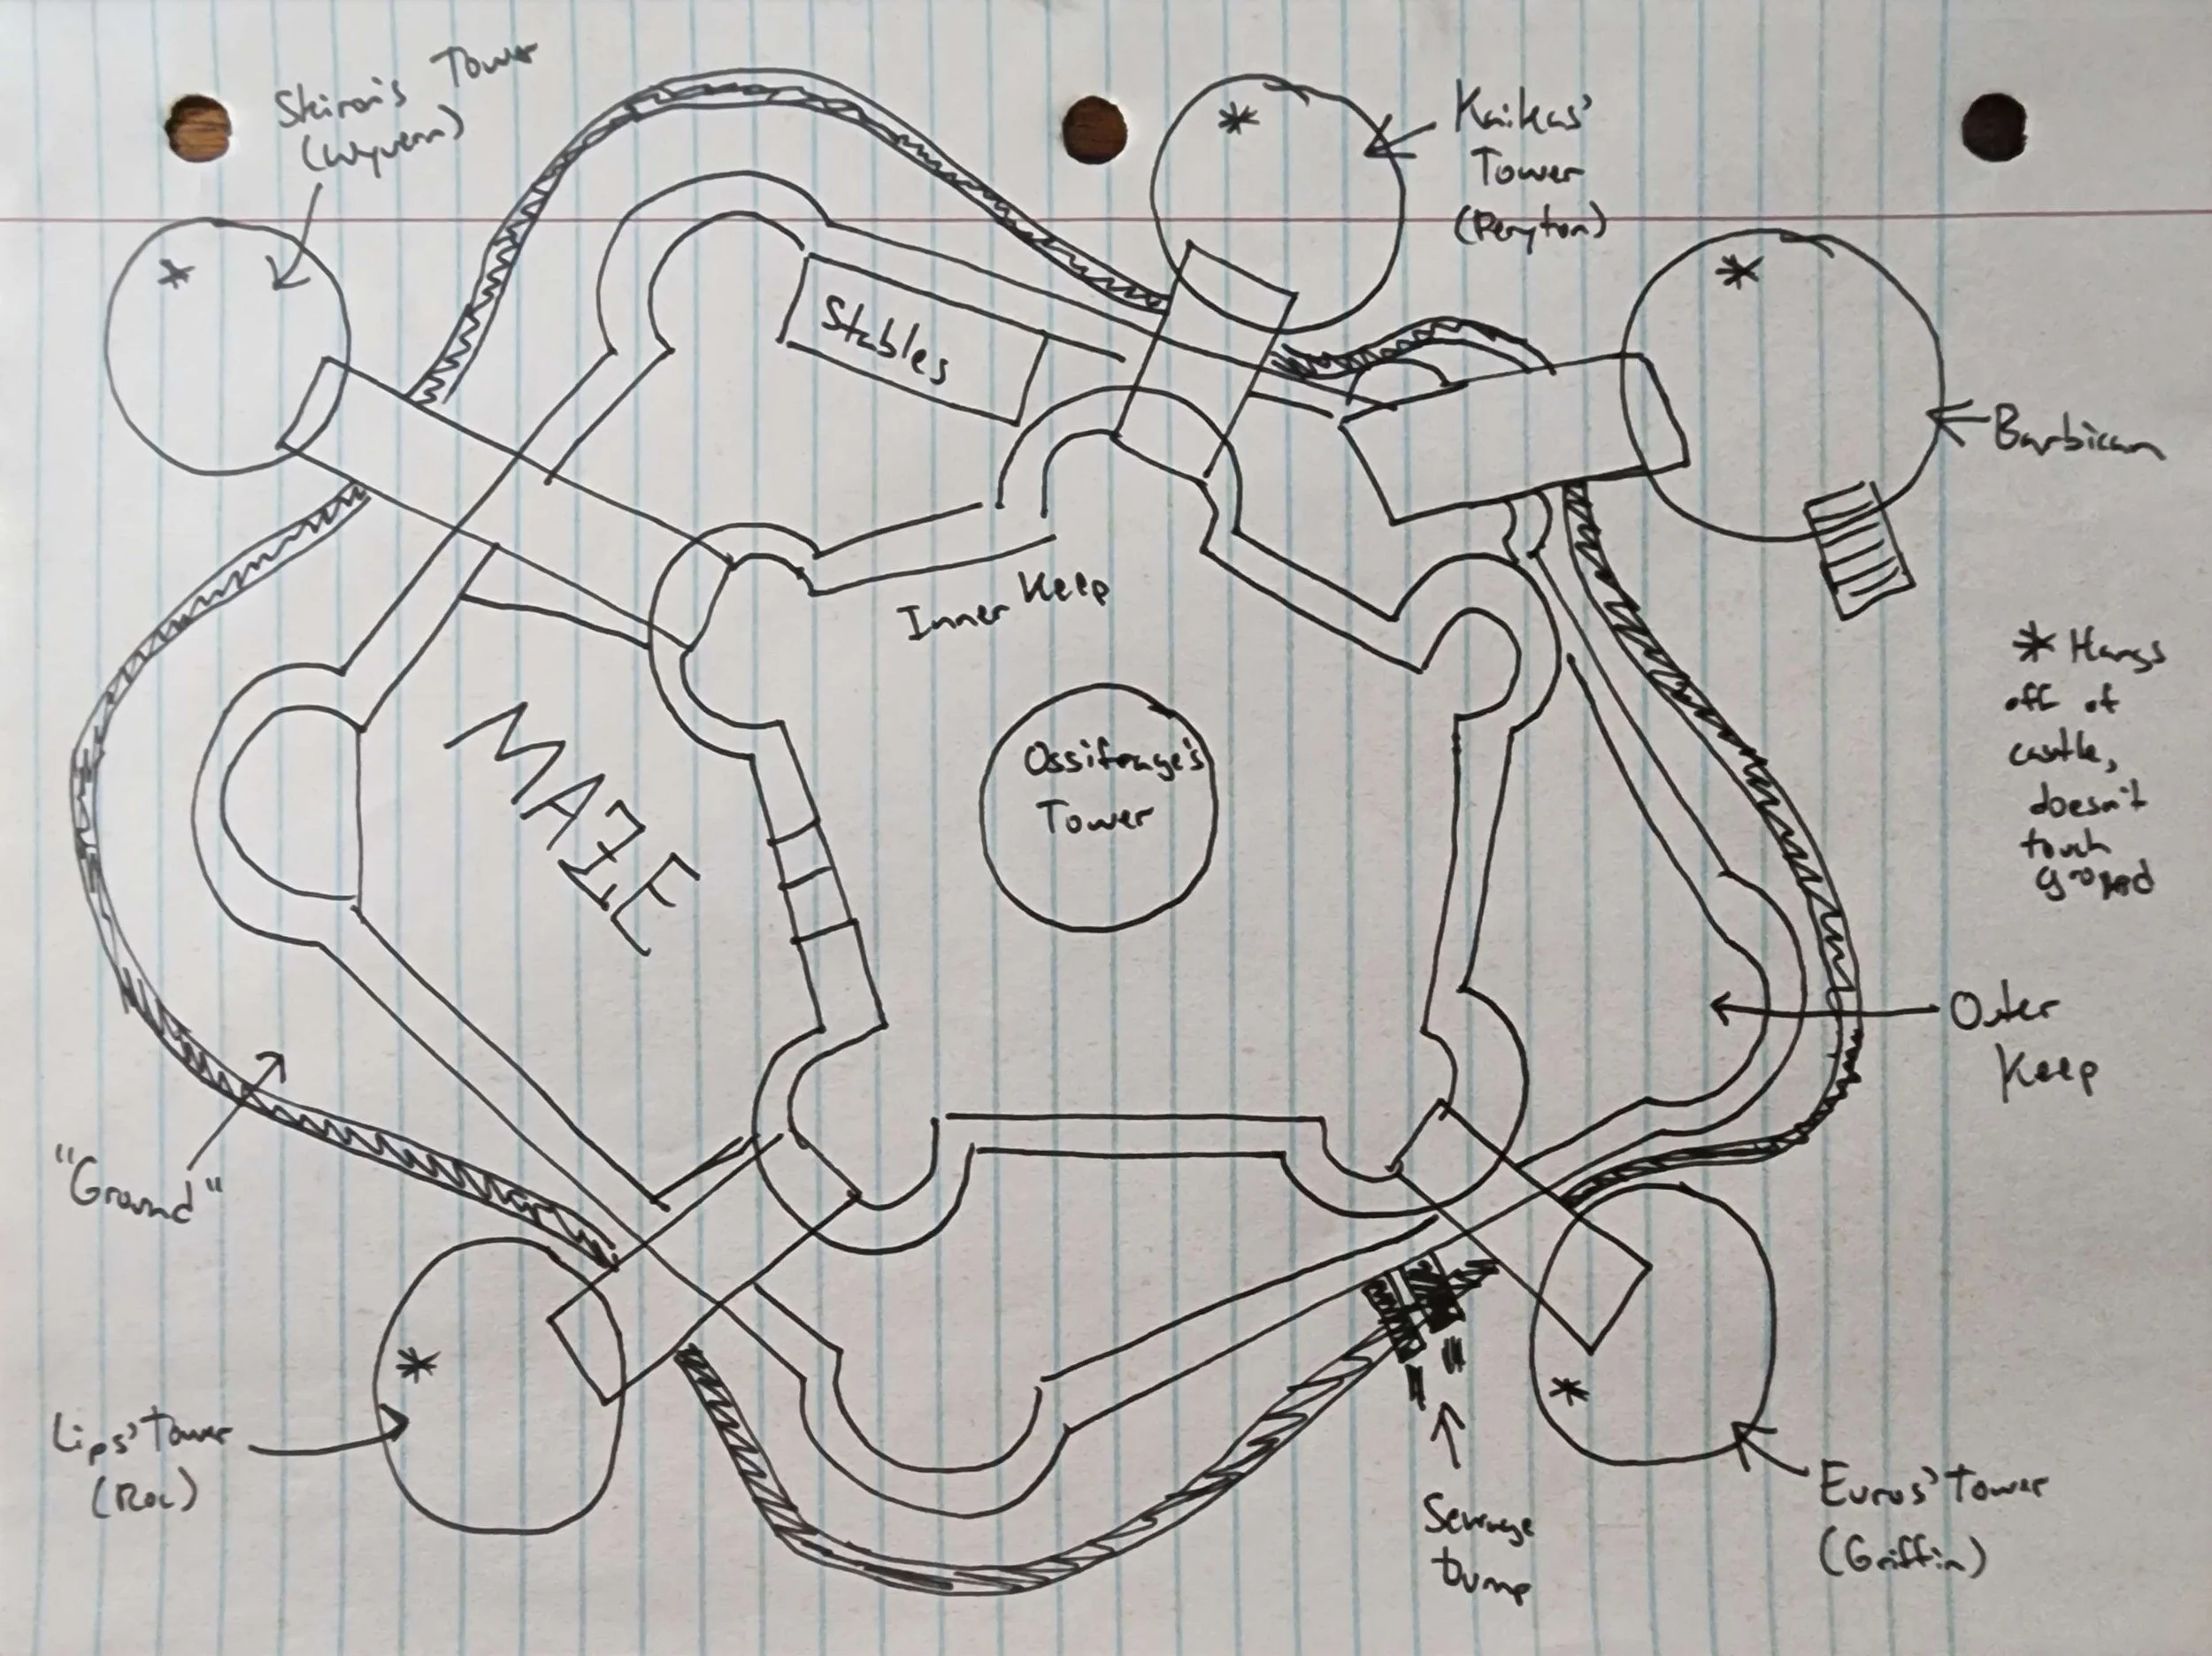 Skiron's Tower
(Wyvern)
Kaikas'
Tower
(Peryton)
Stables
Barbican
Inner Keep
* Hangs
off of
castle,
doesn't
touch
ground
MAZE
Ossifrage's
Tower
Outer
Keep
"Ground"
Lips' Tower
(Roc)
Sewage
Dump
Euros' Tower
(Griffin)